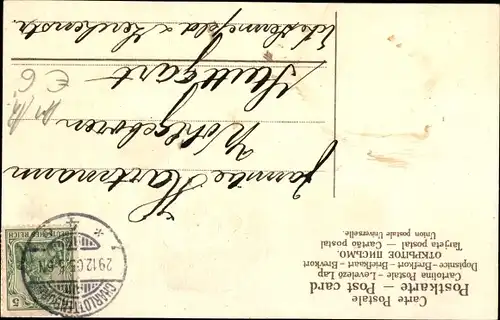 Carte Postale
Postkarte — Post card
Cartolina Postale - Levelező Lap
Dopisnice - Brefkort - Briefkaart - Brevkort
ОТКРЫТОЕ ПИСЬМО.
Tarjeta postal — Cartão postal
Union postale Universelle.
DEUTSCHES REICH
5
CHARLOTTENBURG
29.12.05
Familie Hartmann
Wohlgeboren
Stuttgart
Ecke
€6